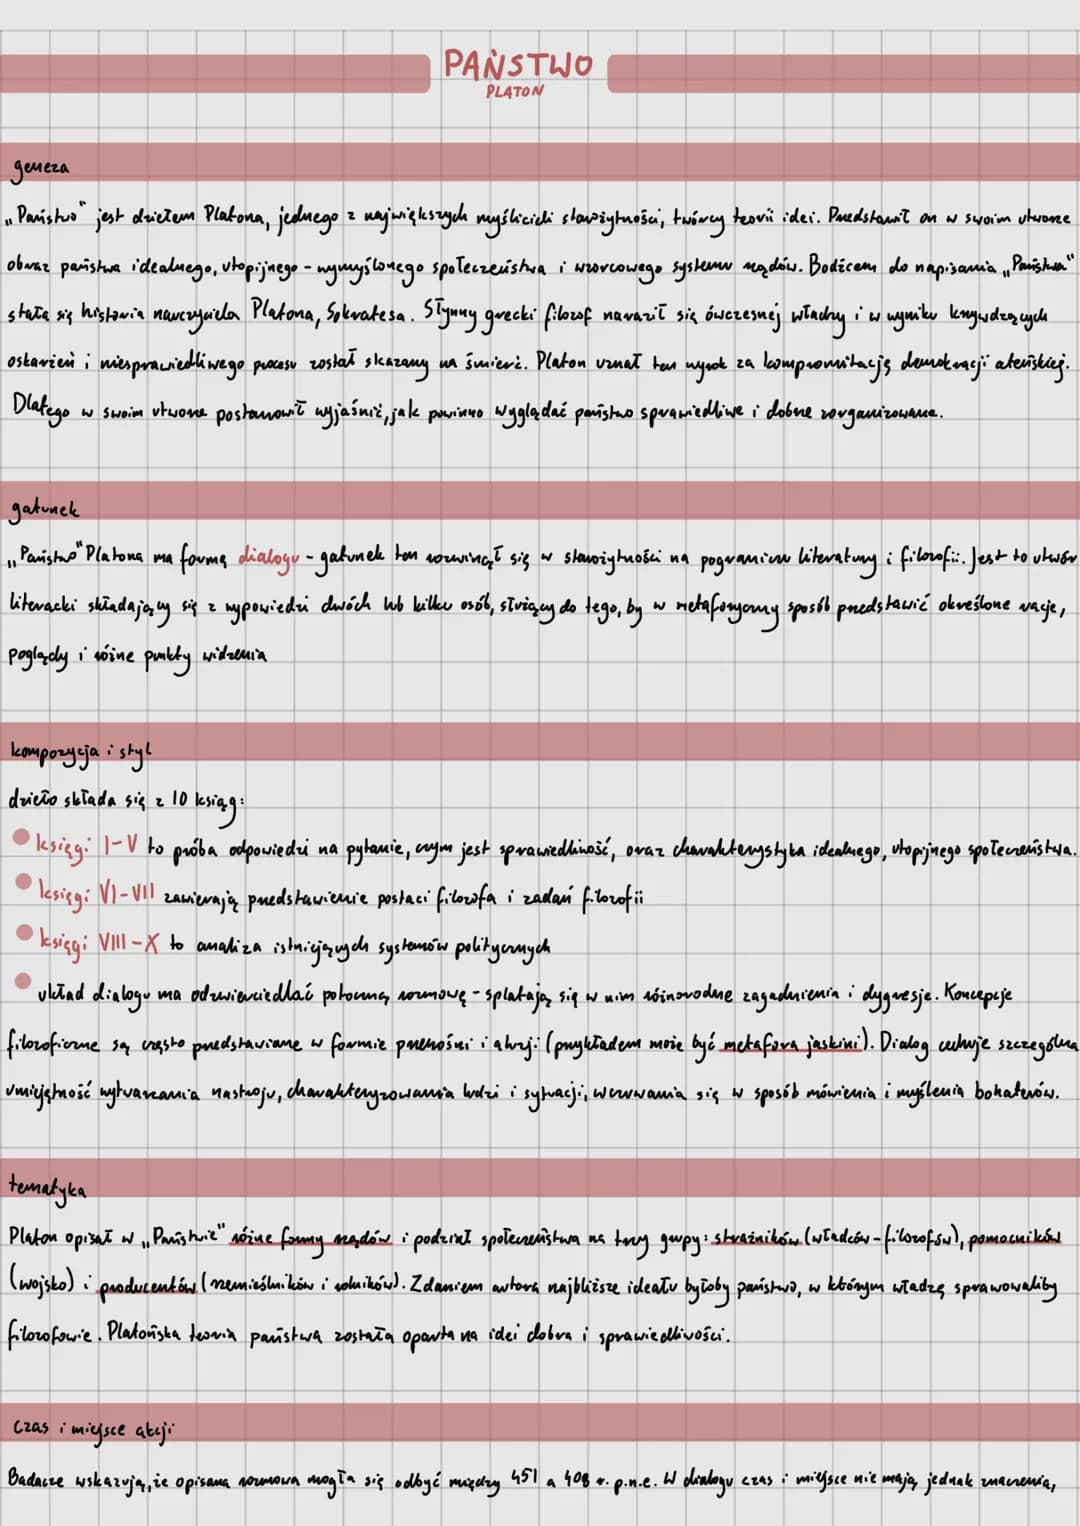 PAŃSTWO
PLATON
geneza
„Państwo" jest dziełem Platona, jednego z największych myślicieli starożytności, twórcy teorii idei. Przedstawił on w swoim utworze
obraz państwa idealnego, utopijnego - wymyślonego społeczeństwa i wzorcowego systemu rządów. Bodźcem do napisania „Państwa"
stała się historia nauczyciela Platona, Sokratesa. Słynny grecki filozof naraził się ówczesnej władzy i w wyniku krzywdzących
oskarżeń i niesprawiedliwego procesu został skazany na śmierć. Platon uznał ten wyrok za kompromitację demokracji ateńskiej.
Dlatego w swoim utworze postanowił wyjaśnić, jak powinno wyglądać państwo sprawiedliwe i dobrze zorganizowane.
gatunek
„Państwo" Platona ma formę dialogu - gatunek ten rozwinął się w starożytności na pograniczu literatury i filozofii. Jest to utwór
literacki składający się z wypowiedzi dwóch lub kilku osób, służący do tego, by w metaforyczny sposób przedstawić określone racje,
poglądy i różne punkty widzenia
kompozycja i styl
dzieło składa się z 10 ksiąg:
księgi I-V to próba odpowiedzi na pytanie, czym jest sprawiedliwość, oraz charakterystyka idealnego, utopijnego społeczeństwa.
księgi VI-VII zawierają przedstawienie postaci filozofa i zadań filozofii
księgi VIII-X to analiza istniejących systemów politycznych
układ dialogu ma odzwierciedlać potoczną rozmowę - splatają się w nim różnorodne zagadnienia i dygresje. Koncepcje
filozoficzne są często przedstawiane w formie przenośni i aluzji (przykładem może być metafora jaskini). Dialog cechuje szczególna
umiejętność wytwarzania nastroju, charakteryzowania ludzi i sytuacji, wczuwania się w sposób mówienia i myślenia bohaterów.
tematyka
Platon opisał w „Państwie" różne formy rządów i podział społeczeństwa na trzy grupy: strażników (władców-filozofów), pomocników
(wojsko) i producentów (rzemieślników i rolników). Zdaniem autora najbliższe ideału byłoby państwo, w którym władzę sprawowaliby
filozofowie. Platońska teoria państwa została oparta na idei dobra i sprawiedliwości.
czas i miejsce akcji
Badacze wskazują, że opisana rozmowa mogła się odbyć między 451 a 408 r. p.n.e. W dialogu czas i miejsce nie mają jednak znaczenia,